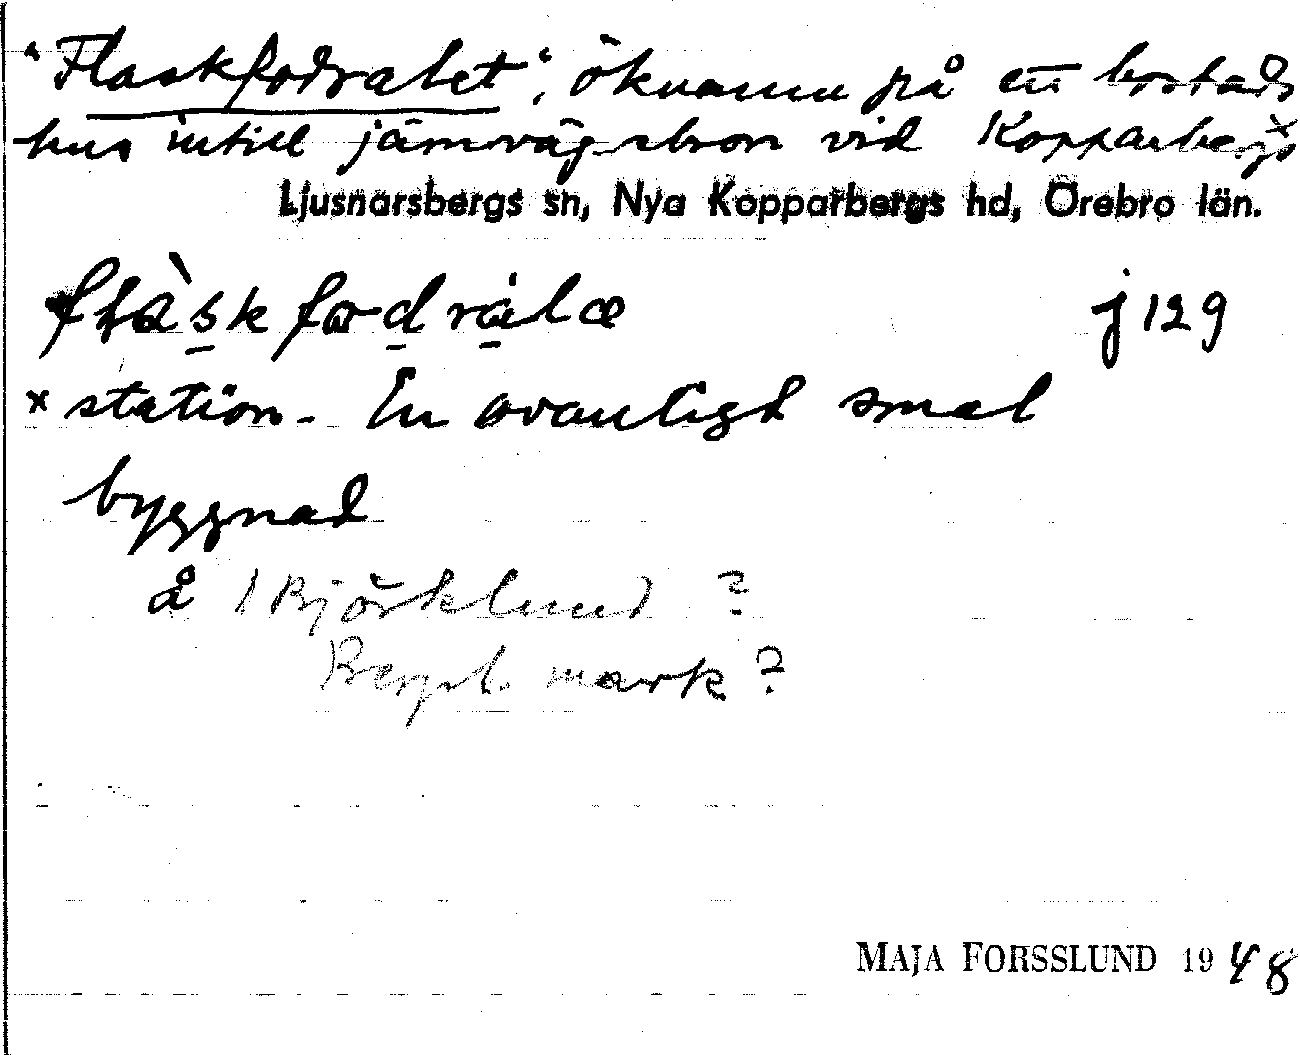 "Flaskfodralet", öknamn på ett bostads
hus intill järnvägsbron vid Kopparbergs x
Ljusnarsbergs sn, Nya Kopparbergs hd, Örebro län.
flàskfodrálæ j 129
x station. En ovanligt smal
byggnad
å 1 Björklund ?
mark ?
MAJA FORSSLUND 1948